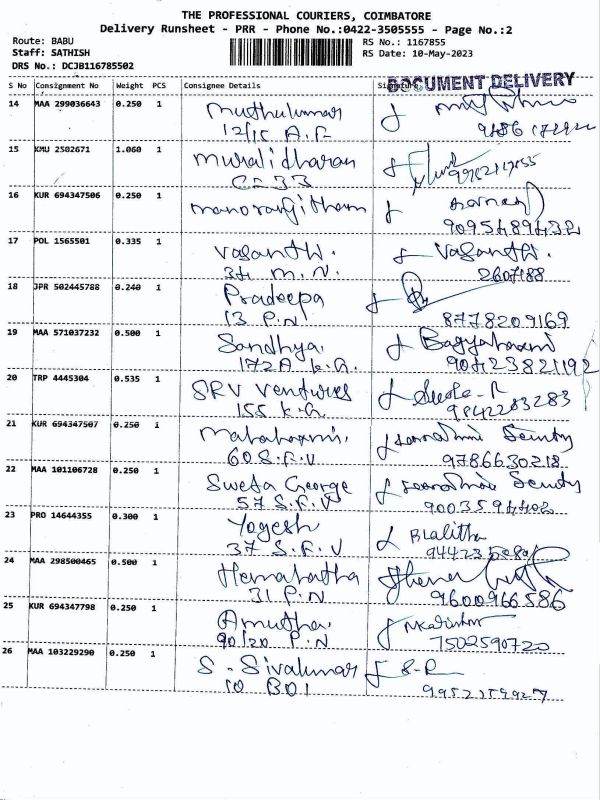 THE PROFESSIONAL COURIERS, COIMBATORE
Delivery Runsheet - PRR - Phone No.:0422-3505555 - Page No.:2
Route: BABU RS No.: 1167855
Staff: SATHISH RS Date: 10-May-2023
DRS No.: DCJB116785502
S No Consignment No Weight PCS Consignee Details
DOCUMENT DELIVERY
14 MAA 299036643 0.250 1 Muthukumar
12/15 A.F
15 KMU 2502671 1.060 1 Muralidharan
16 KUR 694347506 0.250 1 Manoranjitham
9095489432
17 POL 1565501 0.335 1 Vasanthi. Vasanthi.
34 M.N. 2607188
18 JPR 502445788 0.240 1 Pradeepa
13 P.N 8778209169
19 MAA 571037232 0.500 1 Sandhya. Bagyalaxmi
172A K.G. 90423821192
20 TRP 4445304 0.535 1 SRV Ventures
155 K.G. 9842203283
21 KUR 694347507 0.250 1
60 S.F.V 9786630218
22 MAA 101106728 0.250 1 Sweta George
57 S.F.V
23 PRO 14644355 0.300 1 Yogesh B Lalitha
37 S.F.V
24 MAA 298500465 0.500 1 Hemalatha
31 P.N 9600966586
25 KUR 694347798 0.250 1 Amutha.
90/20 P.N 7502590720
26 MAA 103229290 0.250 1 S. Sivakumar S-R
10 BOI